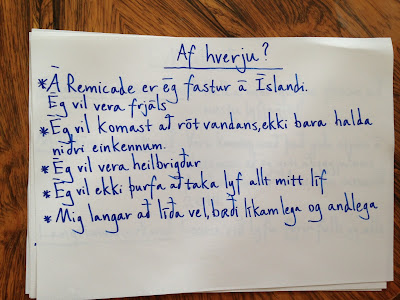 Af hverju?
* Á Remicade er ég fastur á Íslandi.
Ég vil vera frjáls
* Ég vil komast að rót vandans, ekki bara halda
niðri einkennum.
* Ég vil vera heilbrigður
* Ég vil ekki þurfa að taka lyf allt mitt líf
* Mig langar að líða vel, bæði líkamlega og andlega